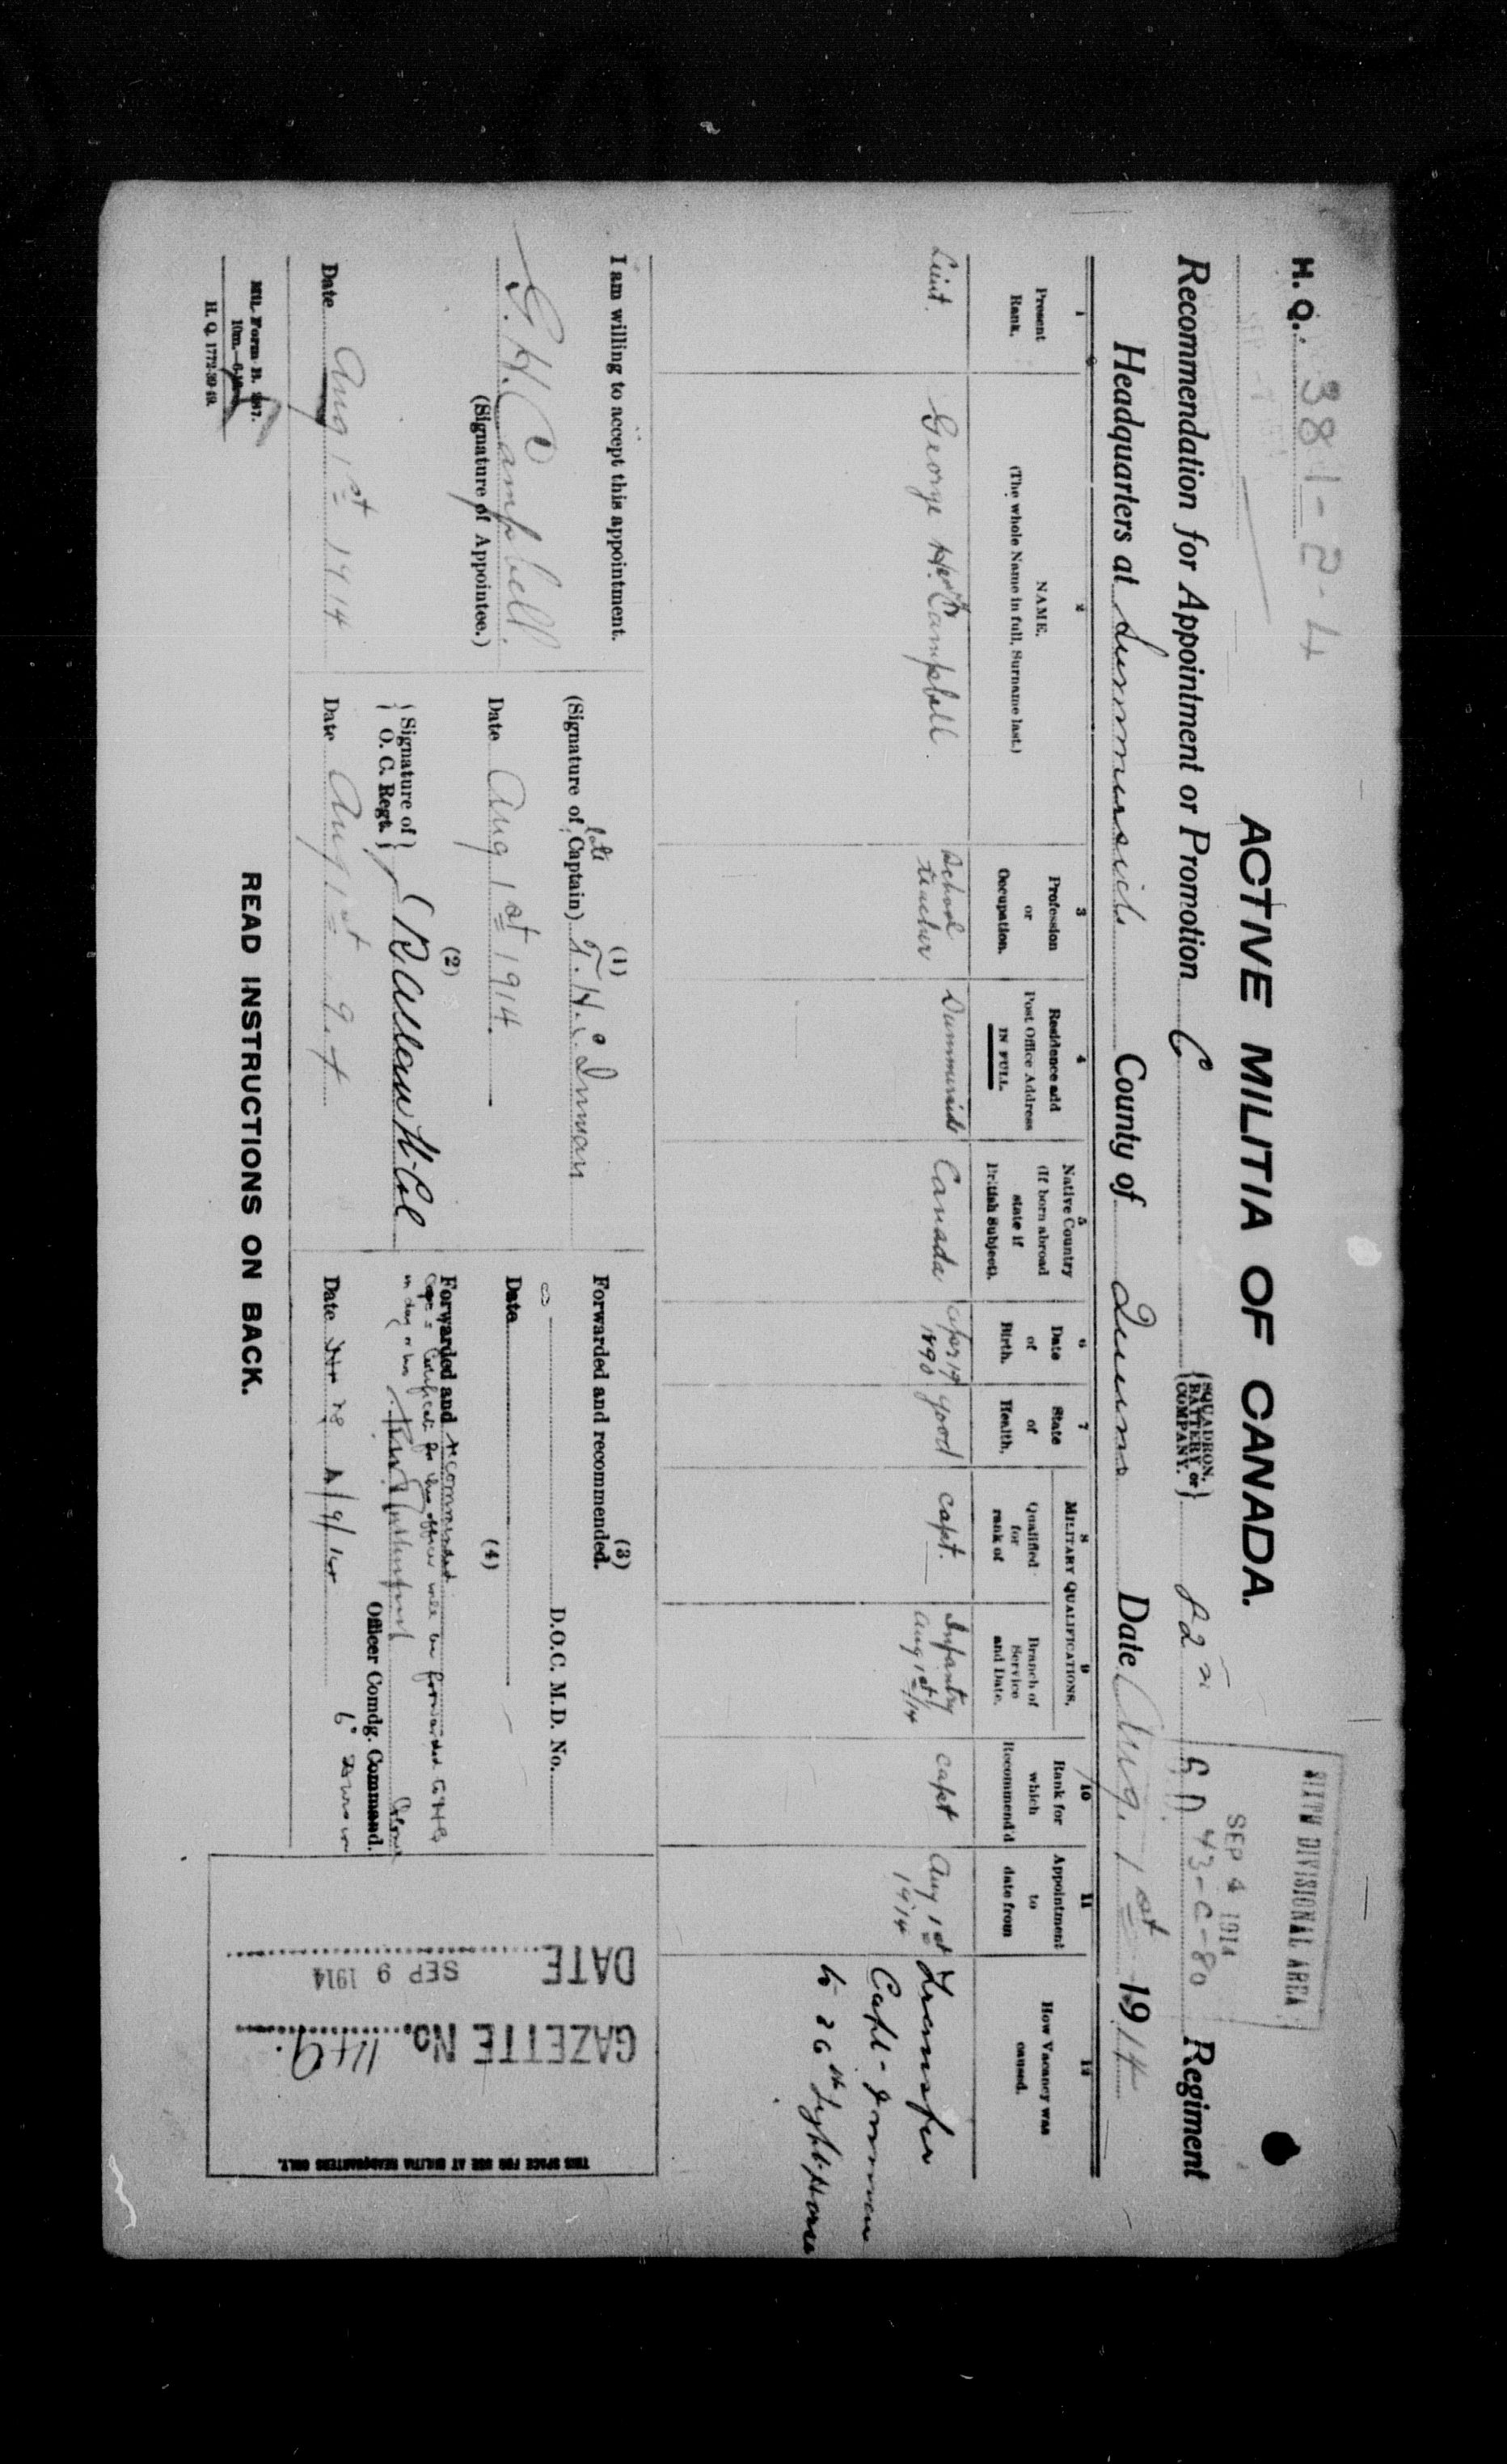 H. Q. 381-2-4
ACTIVE MILITIA OF CANADA.
SIXTH DIVISIONAL AREA
SEP 4 1914
GD 43-C-80
Recommendation for Appointment or Promotion C {SQUADRON, BATTERY or COMPANY.} 82nd Regiment
Headquarters at Summerside County of Queens Date Aug. 1st 1914
1
Present
Rank.
2
NAME.
(The whole Name in full, Surname last.)
3
Profession
or
Occupation.
4
Residence add
Post Office Address
IN FULL.
5
Native Country
(If born abroad
state if
British Subject).
6
Date
of
Birth.
7
State
of
Health.
MILITARY QUALIFICATIONS.
8
Qualified
for
rank of
9
Branch of
Service
and Date.
10
Rank for
which
Recommend'd
11
Appointment
to
date from
12
How Vacancy was
caused.
Lieut.
George H. Campbell.
School
teacher
Summerside
Canada
Apr 19
1890
good
capt.
Infantry
Aug 1st/14
capt
Aug 1st
1914
Transfer
Capt
to 36th Light Horse
I am willing to accept this appointment.
G. H. Campbell.
(Signature of Appointee.)
Date Aug 1st 1914
(1)
(Signature of Captain) Inman
Date Aug 1st 1914.
(2)
{Signature of
O. C. Regt.}
Date Aug 1st
(3)
Forwarded and recommended.
D.O.C. M.D. No.
Date
(4)
Forwarded and recommended
Certificate for this officer will be forwarded to HQ
in day or two
Officer Comdg. Command.
6th Division
Date
DATE SEP 9 1914
GAZETTE No. 149.
THIS SPACE FOR USE AT MILITIA HEADQUARTERS ONLY.
Mil. Form B. 287.
H. Q. 1772-39-49.
READ INSTRUCTIONS ON BACK.